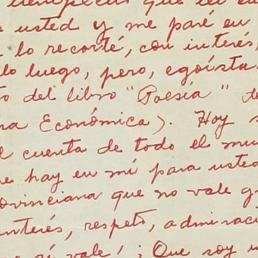 que el en
usted y me paré en
lo recorté, con interés,
lo luego, pero, egoísta
to del libro "Poesía" de
ra Económica). Hoy s
l cuenta de todo el mu
e hay en mí para usted
ovinciana que no vale g
interés, respeto, admiraci
sí vale! ¡Que soy u